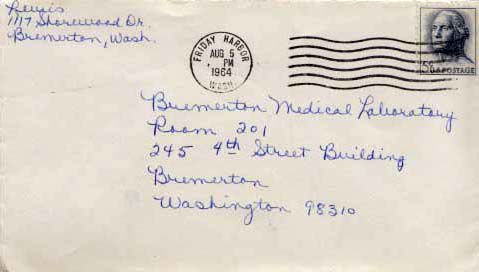 Lewis
1117 Shorewood Dr.
Bremerton, Wash.
FRIDAY HARBOR
AUG 5
PM
1964
WASH.
5¢ U.S. POSTAGE
Bremerton Medical Laboratory
Room 201
245 4th Street Building
Bremerton
Washington 98310